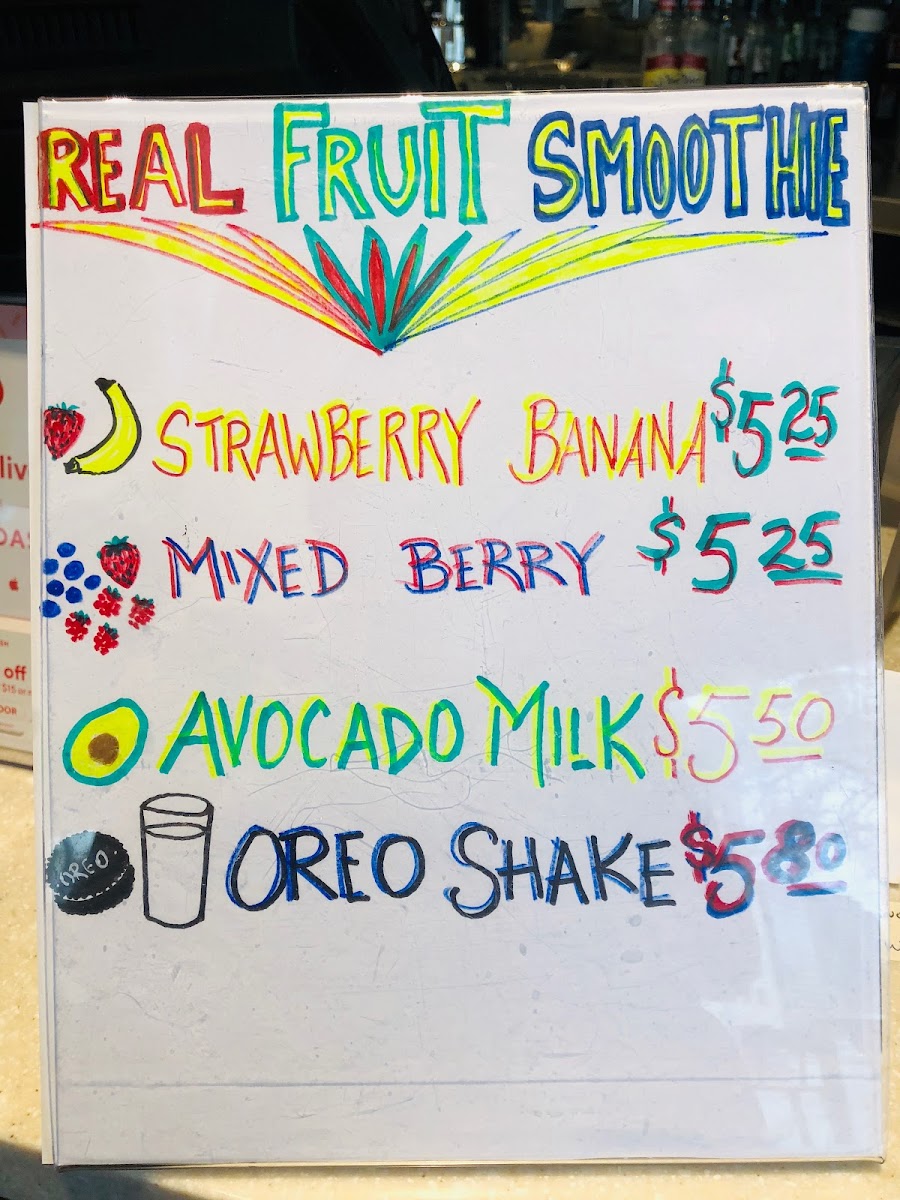 REAL FRUIT SMOOTHIE
STRAWBERRY BANANA $5.25
MIXED BERRY $5.25
AVOCADO MILK $5.50
OREO
OREO SHAKE $5.80
off
$15 or